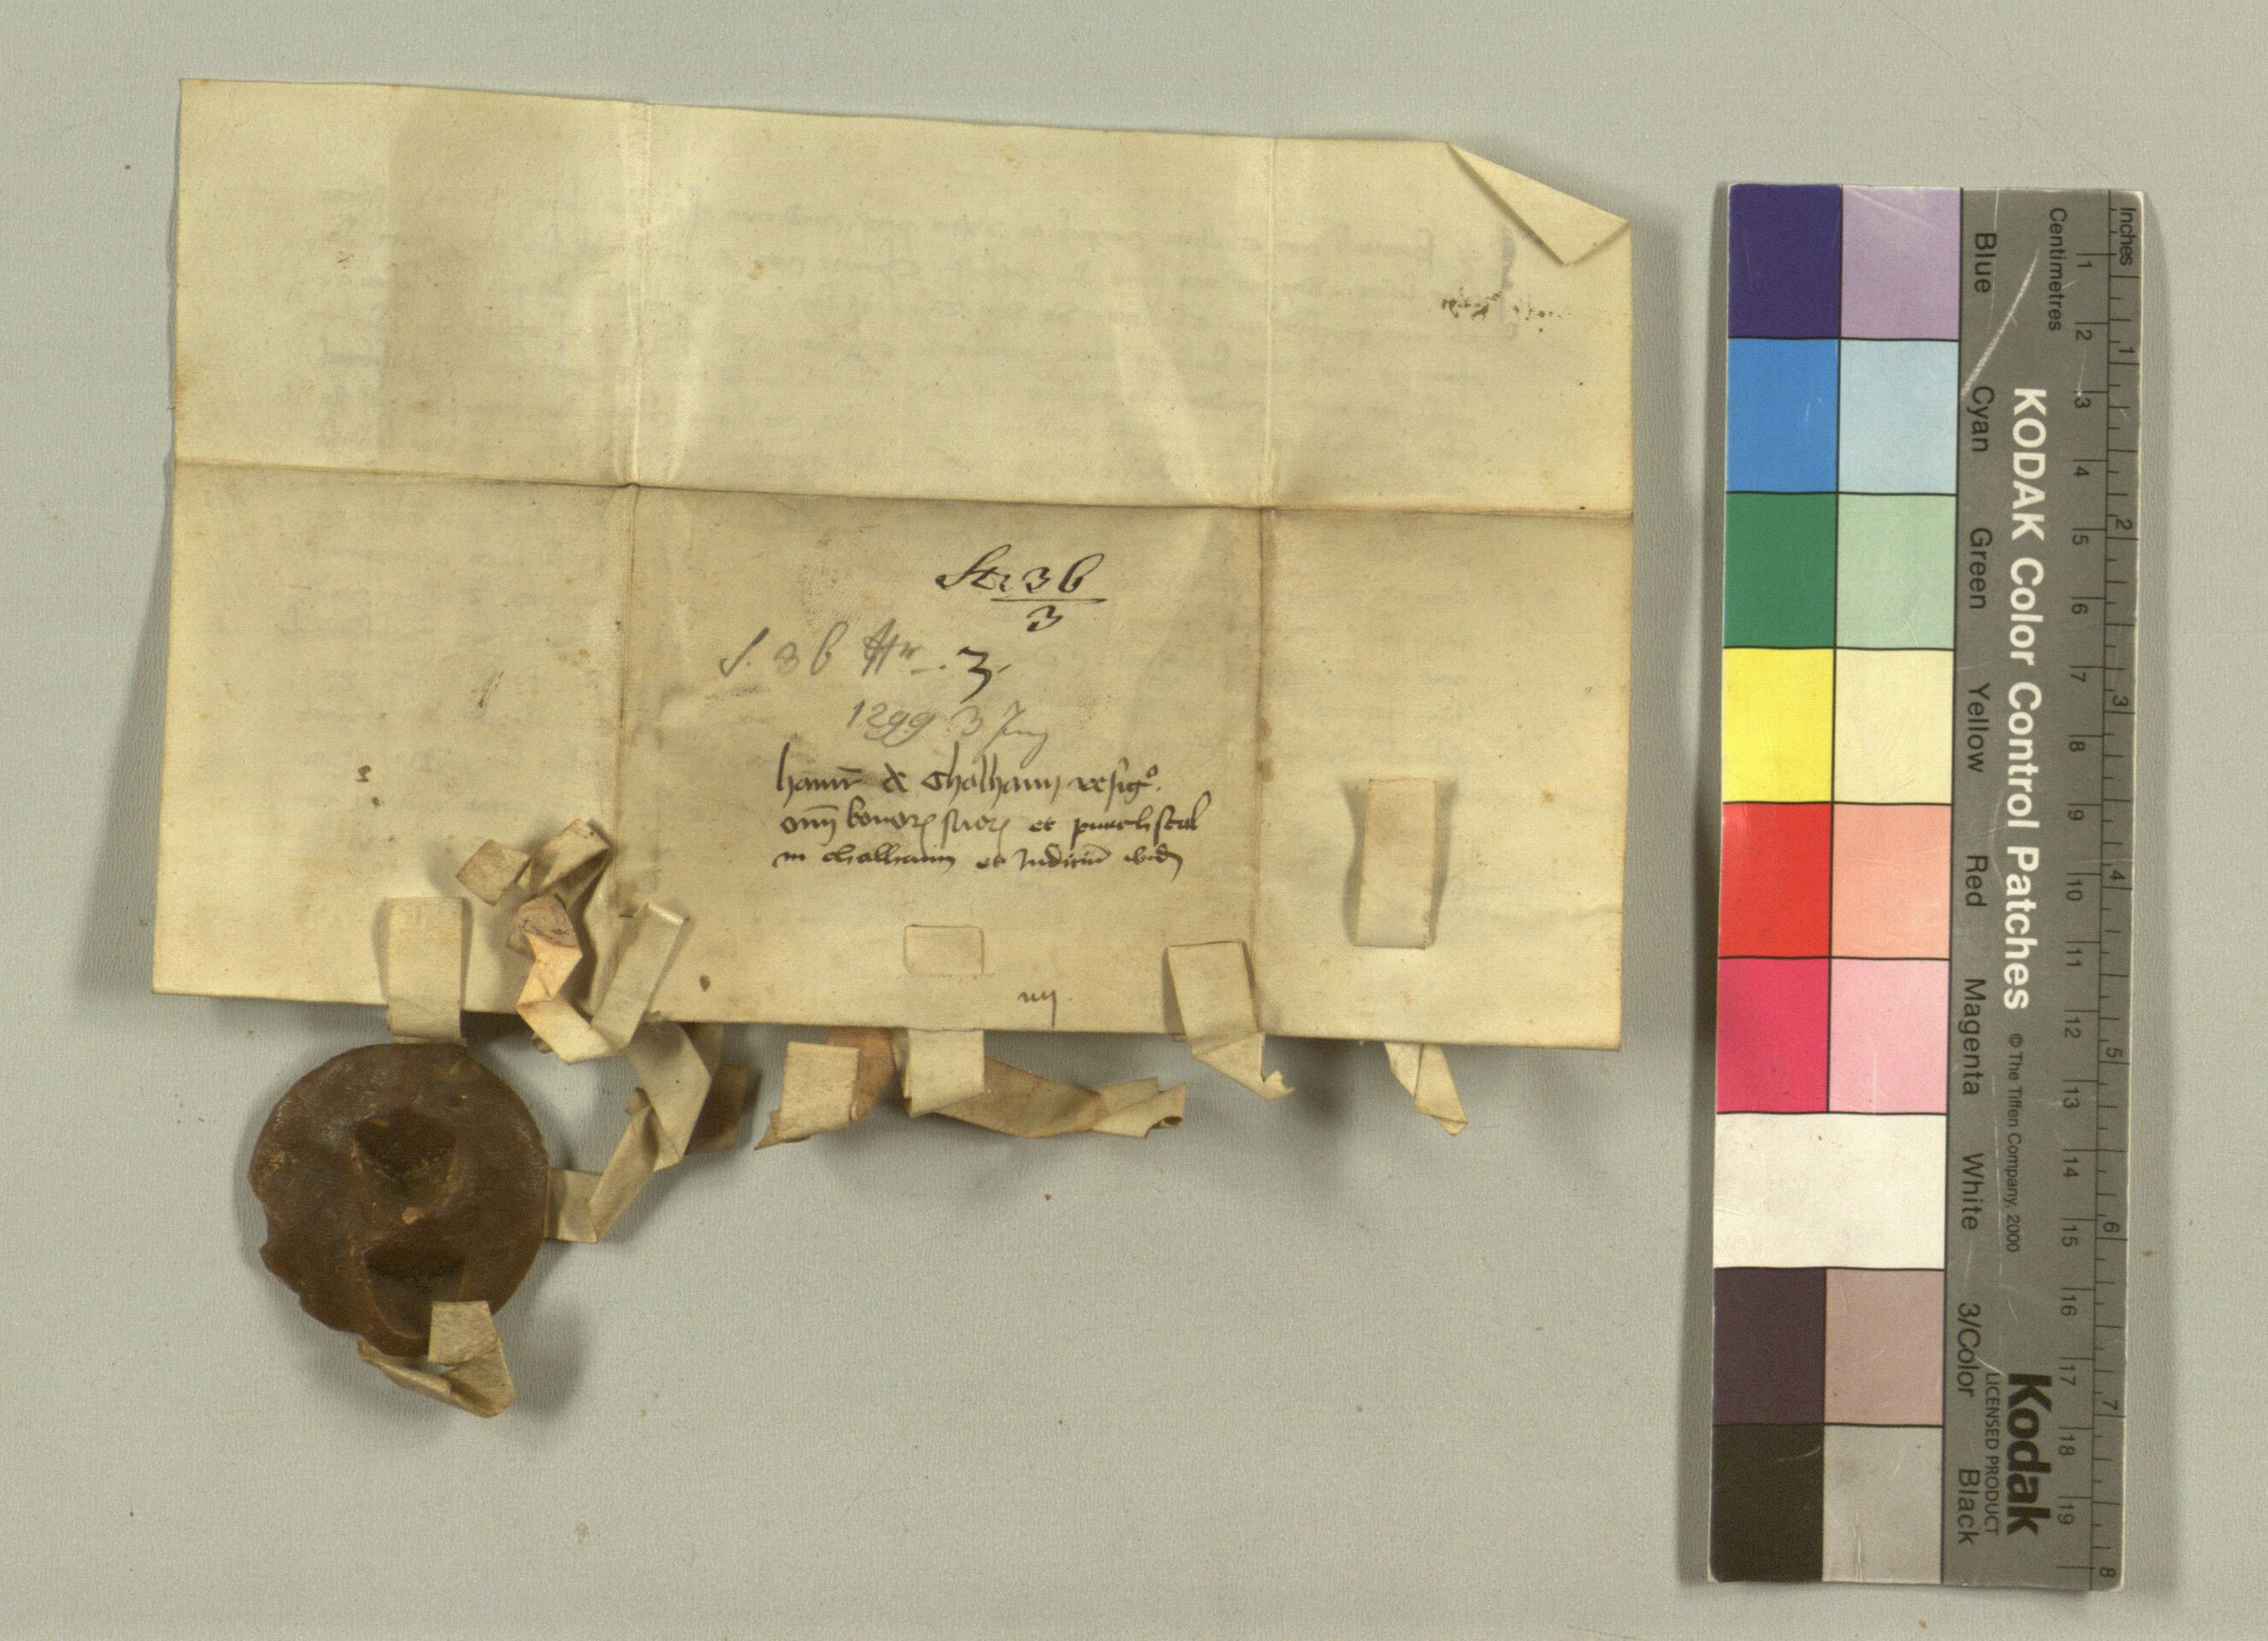 Str 3 b
3
S. 3 b Nr. 3.
1299 3 Juny
hainr de Chalhaim resigo.
omi bonor suor et purchstal
in chalhaim et Iudiciu ibid
iiij.
Blue Cyan Green Yellow Red Magenta White 3/Color Black
KODAK Color Control Patches © The Tiffen Company, 2000
Kodak
LICENSED PRODUCT
Centimetres 1 2 3 4 5 6 7 8 9 10 11 12 13 14 15 16 17 18 19
Inches 1 2 3 4 5 6 7 8